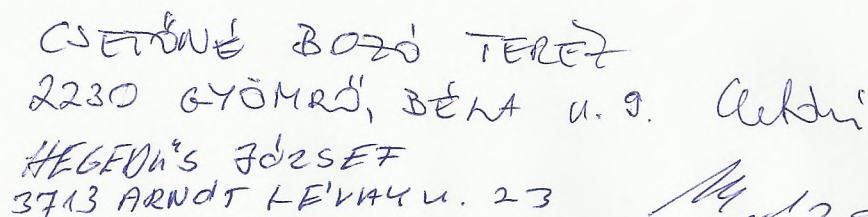 CSETŐNÉ BOZÓ TERÉZ
2230 GYÖMRŐ, BÉLA U. 9.
HEGEDŰS JÓZSEF
3713 ARNÓT LÉVAY U. 23